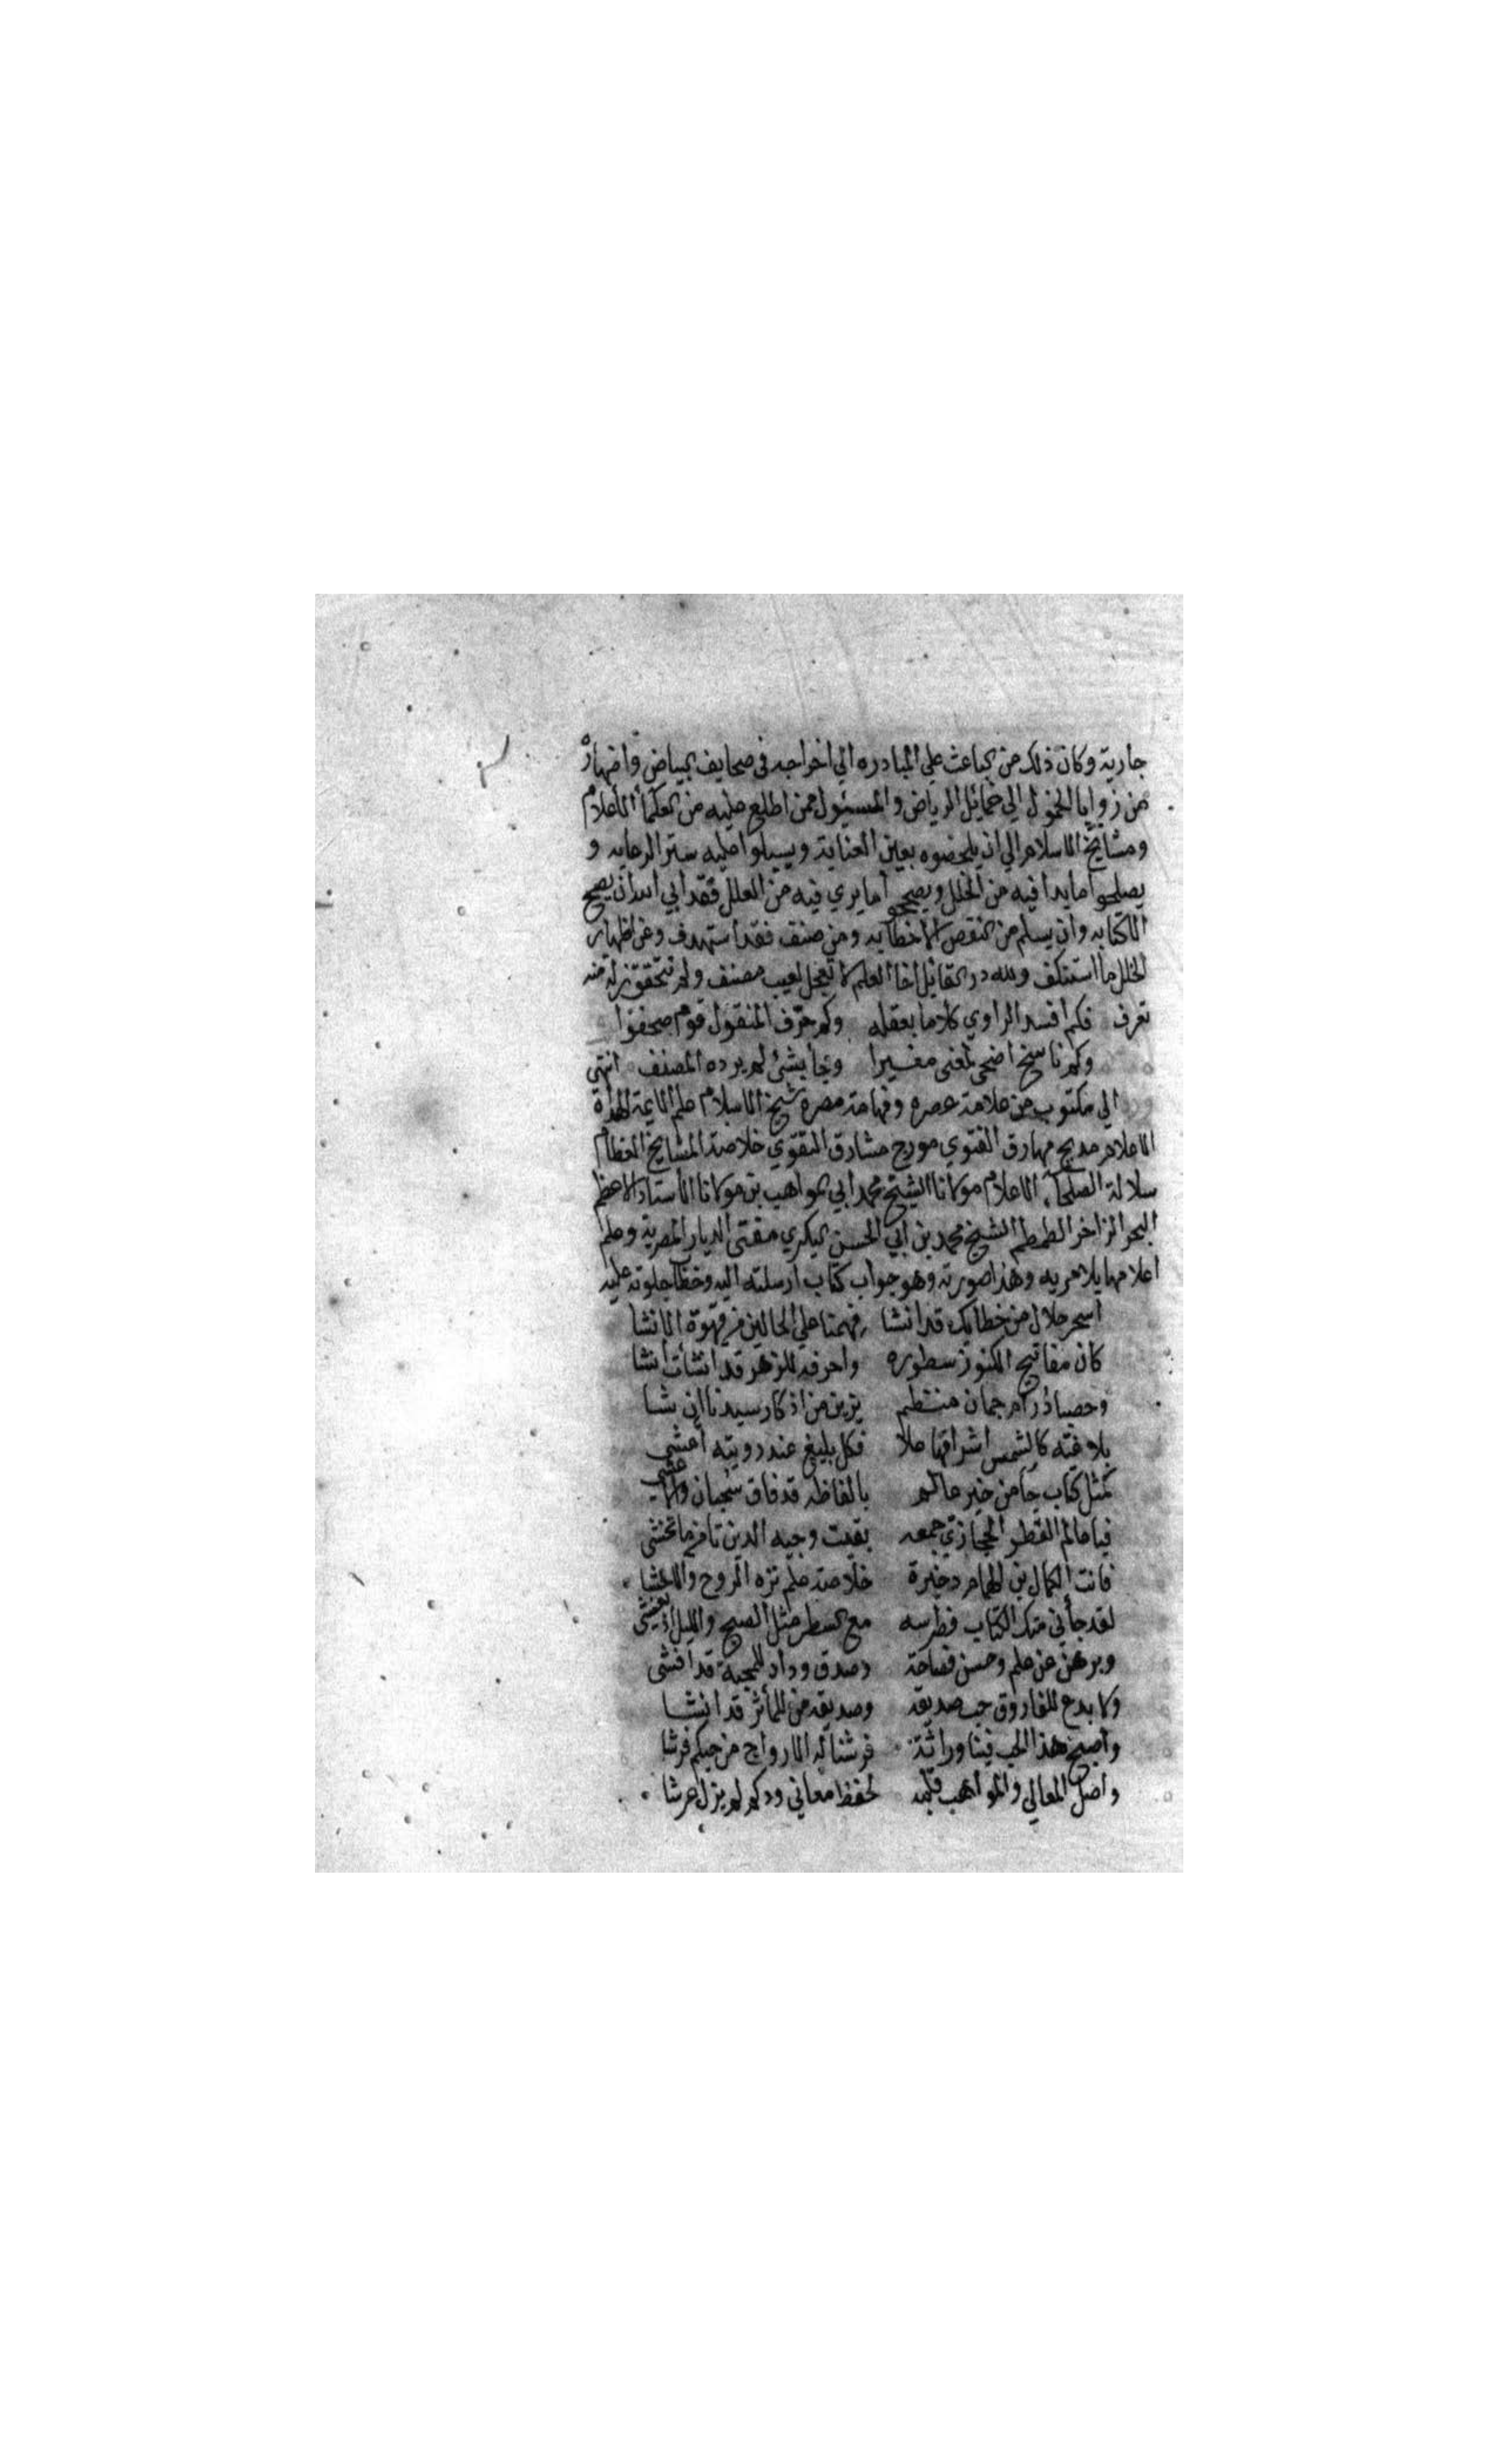 جارية وكان ذلك من الباعث علي المبادره الي اخراجه في صحايف البياض واضهاره
من زوايا الخمول الي خمايل الرياض والمسيول ممن اطلع عليه من العلمأ الأعلام
ومشايخ الاسلام الي ان يلحضوه بعين العناية ويسبلوا عليه ستر الرعايه و
يصلحوا مابدا فيه من الخلل ويصححوا مايري فيه من العلل فقد ابي الله ان يصح
الا كتابه وان يسلم من النقص الا خطابه ومن صنف فقد استهدف وعن اظهار
الخلل ما استنكف ولله در القايل اخا العلم لا تعجل لعيب مصنف ولم تتحقق زلة منه
تعرف فكم افسد الراوي كلاما بعقله وكم حرف المنقول قوم وصحفوا
وكم ناسخ اضحي لمعني مغيرا وجأ بشئ لم يرده المصنف انتهي
الي مكتوب من علامة عصره وفهامة مصره شيخ الاسلام علم الايمة الهداة
الاعلام مدبج مهارق الفتوي مورج مشارق التقوي خلاصة المشايخ العظام
سلالة الصلحأ الاعلام مولانا الشيخ محمد ابي المواهب بن مولانا الأستاد الاعظم
البحر الزاخر الطمطم الشيخ محمد بن ابي الحسن البكري مفتي الديار المصرية وعلم
اعلامها بلا مريه وهذا صورته وهو جواب كتاب ارسلته اليه وخطاب جلوته عليه
اسحر حلال من خطابك قد انشا فهمنا علي الحالين من قهوة الانشا
كان مفاتيح الكنوز سطوره واحرفه للزهر قد انشأت انشا
وحصبا در ام جمان منتظم يزين من اذكار سيدنا ان شا
بلاغته كالشمس اشراقها علا فكل بليغ عند رويته أعشي
كمثل كتاب جأ من خير عالم بالفاظه قد فاق سحبان والاعشي
فيا عالم القطر الحجازي جمعه بقيت وجيه الدين تامن ما تخشي
فانت الكمال بن الهمام دخيرة خلاصة علم نزه الروح والاحشا
لقد جأني منك الكتاب فطرسه مع السطر مثل الصبح والليل اذ يغشي
وبرهن عن علم وحسن فصاحة وصدق وداد للمحبة قد افشي
ولا بدع للفاروق حب صديقه وصديقه من للمأثر قد انشا
واصبح هذا الحب فينا وراثة فرشنا له الارواح من حبكم فرشا
واصل المعالي والمواهب قلبه لحفظ معاني ودكم لم يزل عرشا